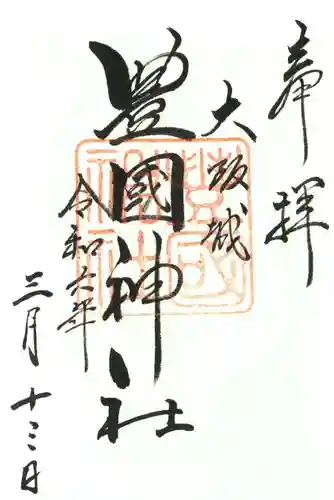 奉拝
大坂城
豊國神社
令和六年
三月十三日